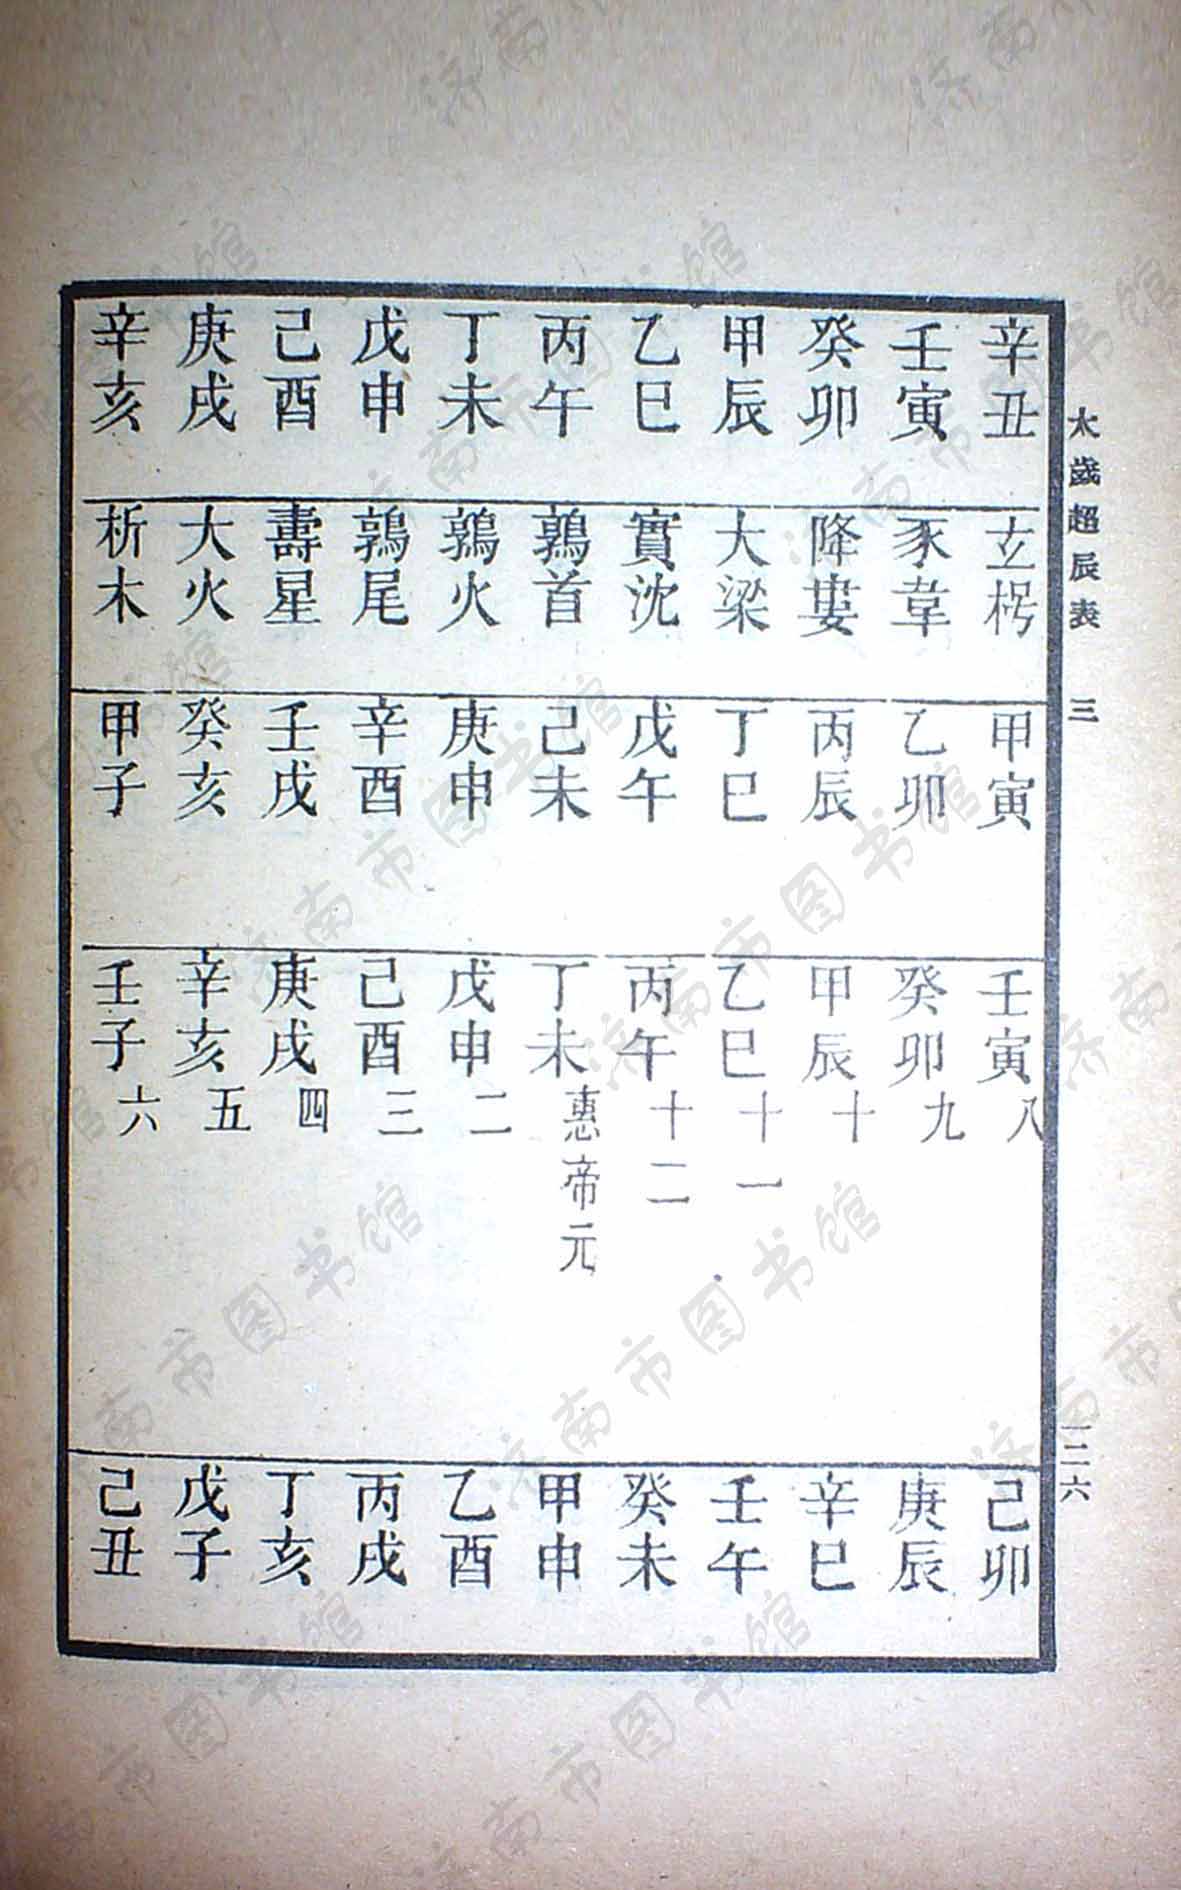 太歲超辰表 三 一二六
辛丑 玄枵 甲寅 壬寅 八 己卯
壬寅 豕韋 乙卯 癸卯 九 庚辰
癸卯 降婁 丙辰 甲辰 十 辛巳
甲辰 大梁 丁巳 乙巳 十一 壬午
乙巳 實沈 戊午 丙午 十二 癸未
丙午 鶉首 己未 丁未 惠帝元 甲申
丁未 鶉火 庚申 戊申 二 乙酉
戊申 鶉尾 辛酉 己酉 三 丙戌
己酉 壽星 壬戌 庚戌 四 丁亥
庚戌 大火 癸亥 辛亥 五 戊子
辛亥 析木 甲子 壬子 六 己丑
济南市图书馆